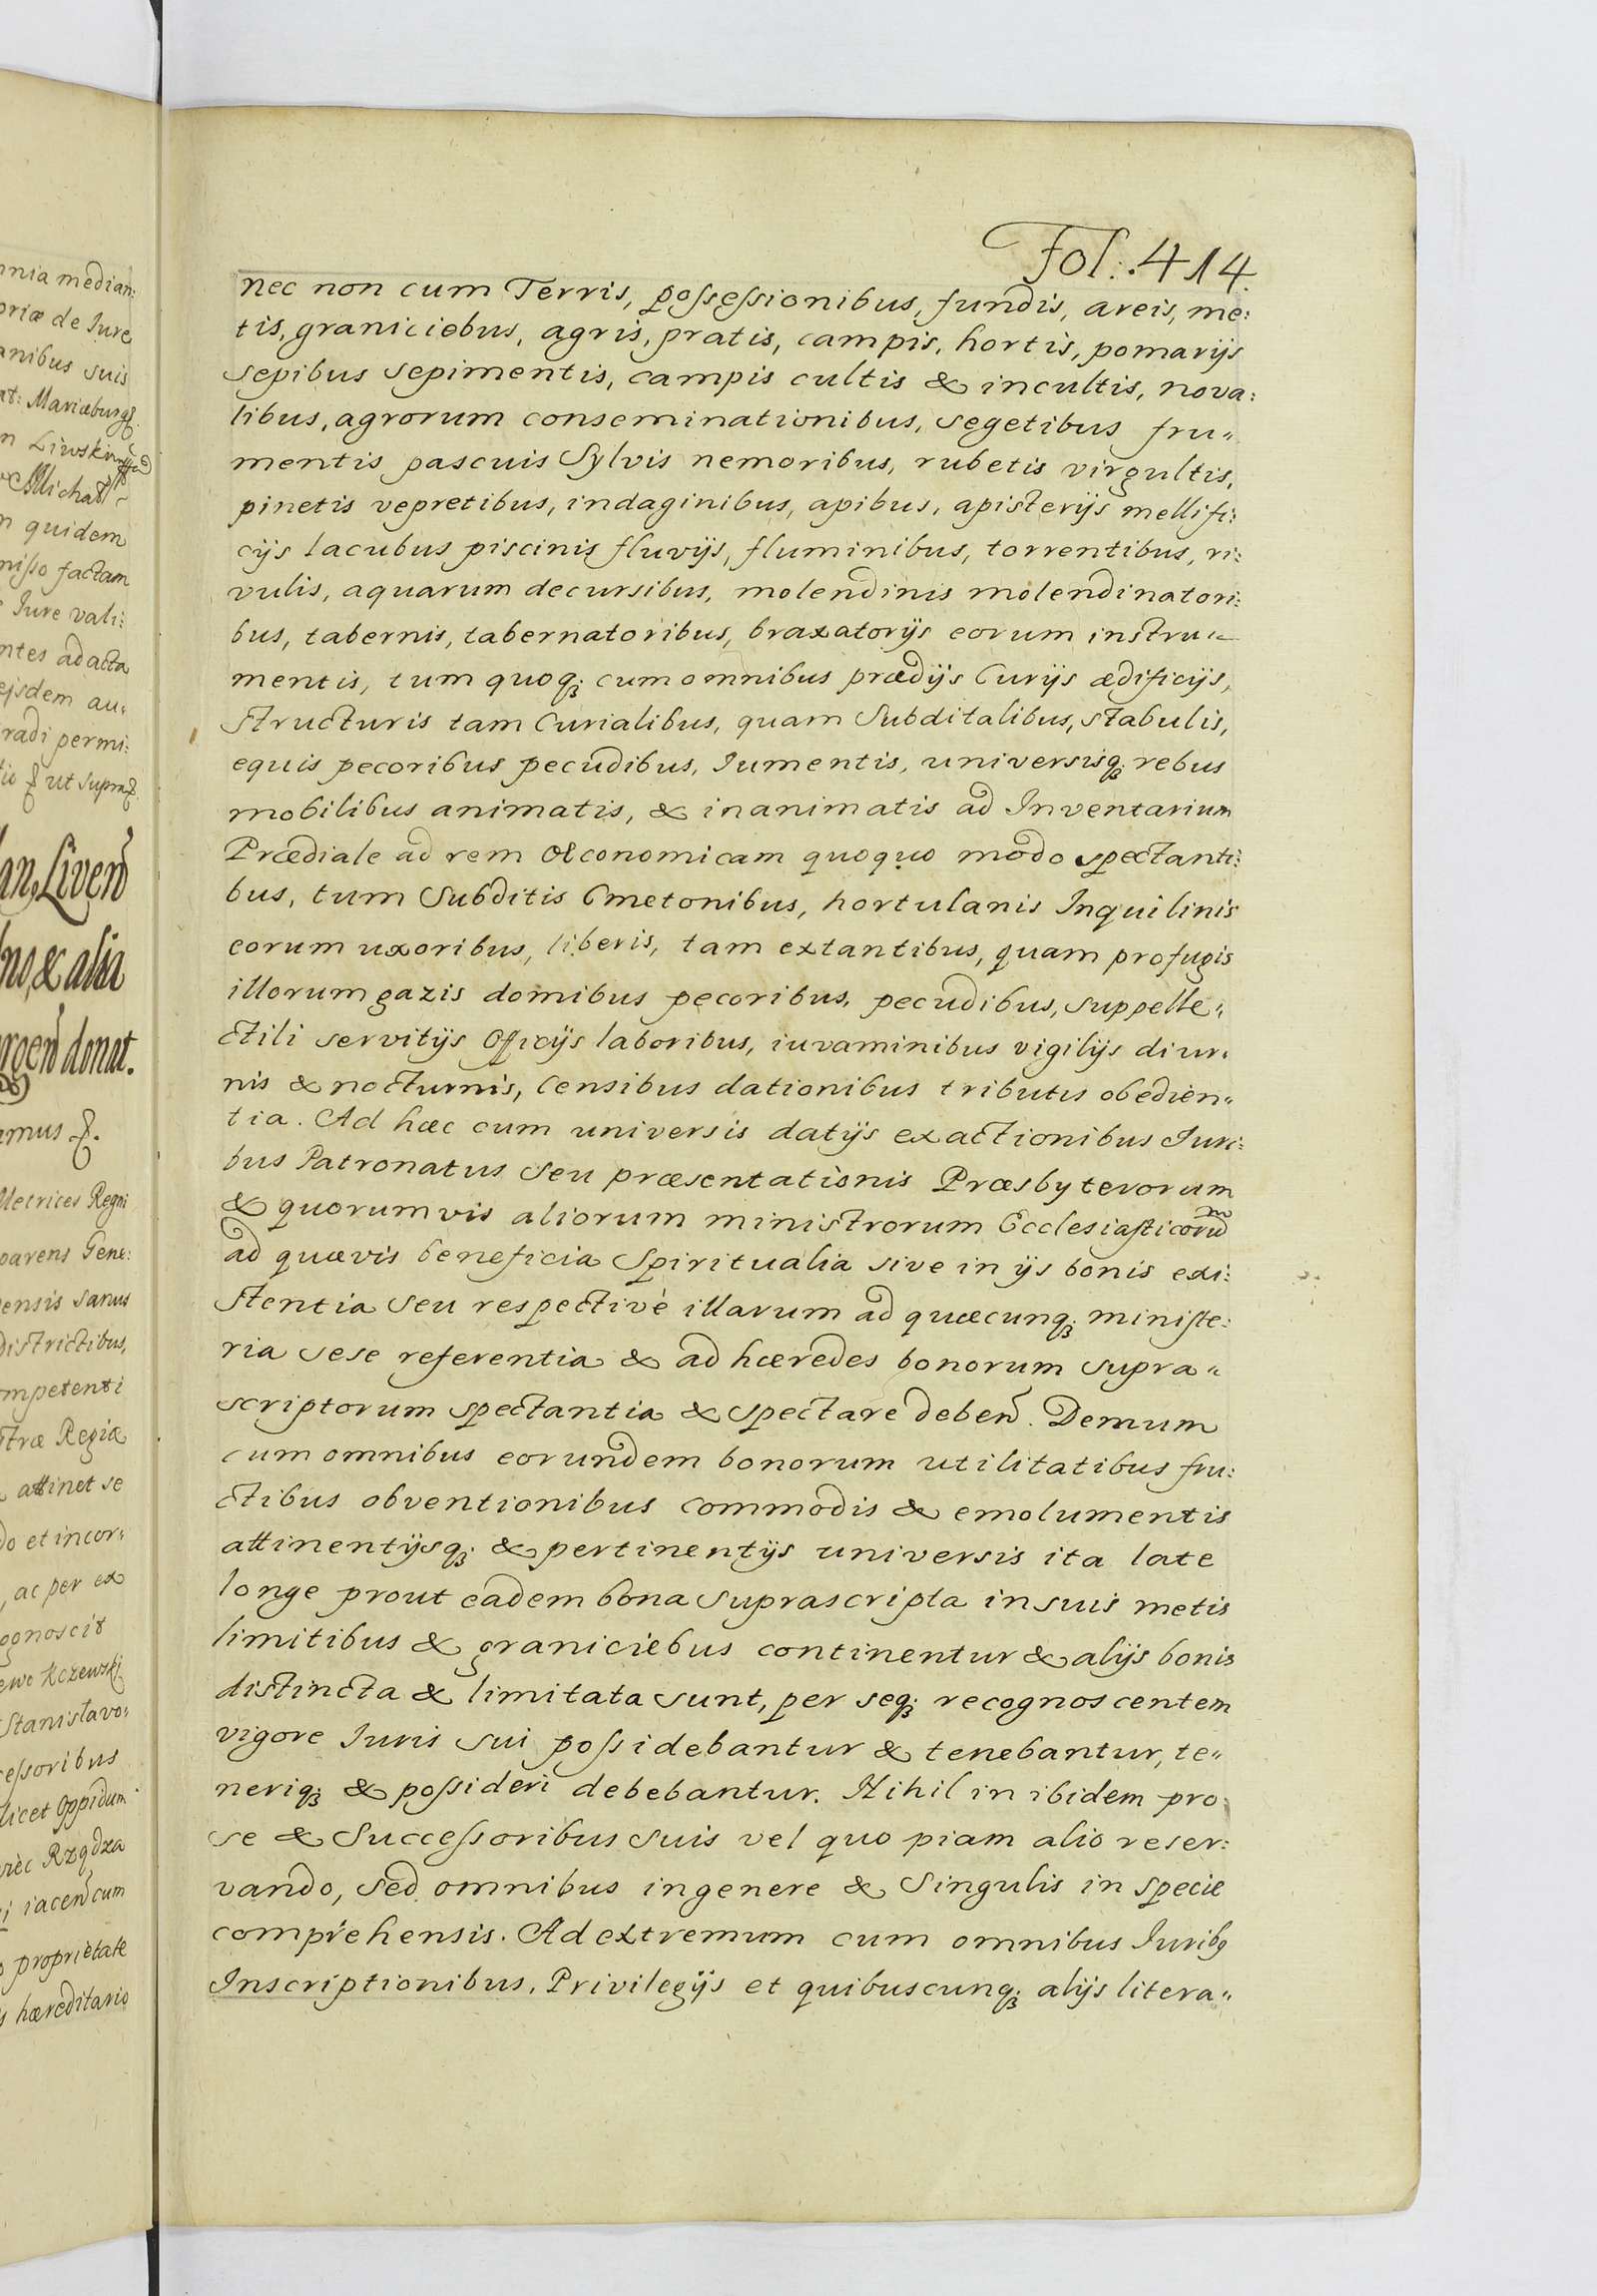 nia median:
oriæ de Iure
anibus suis
at: Mariæburg
n Liwski
Micha
n quidem
misso factam
Iure vali:
ntes ad acta
ejsdem au:
radi permi:
ut supra
an, Liven
no, & alia
roen donat.
mus
Metrices Regni
parens Gene:
ensis sanus
districtibus,
mpetenti
stræ Regiæ
attinet se
do et incor:
, ac per ex
ognoscit
ewo Kczewski
Stanislavo:
cessoribus
licet Oppidum
rièc Rzqdza
i iacen cum
proprietate
s hæreditario
Fol: 414.
nec non cum Terris, possessionibus, fundis, areis, me:
tis, graniciebus, agris, pratis, campis, hortis, pomarijs
sepibus sepimentis, campis cultis & incultis, nova:
libus, agrorum conseminationibus, segetibus fru„
mentis pascuis Sylvis nemoribus, rubetis virgultis,
pinetis vepretibus, indaginibus, apibus, apisterijs mellifi:
cijs lacubus piscinis fluvijs, fluminibus, torrentibus, ri:
vulis, aquarum decursibus, molendinis molendinatori:
bus, tabernis, tabernatoribus, braxatorijs eorum instru„
mentis, tum quoq; cum omnibus prædijs Curijs ædificijs,
structuris tam Curialibus, quam Subditalibus, stabulis,
equis pecoribus pecudibus, Iumentis, universisq; rebus
mobilibus animatis, & inanimatis ad Inventarium
Prædiale ad rem Œconomicam quoquo modo spectanti:
bus, tum Subditis Cmetonibus, hortulanis Inquilinis
eorum uxoribus, liberis, tam extantibus, quam profugis
illorum gazis domibus pecoribus, pecudibus, suppelle„
ctili servitijs Officijs laboribus, iuvaminibus vigilijs diur„
nis & nocturnis, Censibus dationibus tributis obedien„
tia. Ad hæc cum universis datijs exactionibus Iuri:
bus Patronatus seu præsentationis Præsbyterorum
& quorumvis aliorum ministrorum Ecclesiasticorum
ad quævis beneficia Spiritualia sive in ijs bonis exi:
stentia seu respectivè illarum ad quæcunq; ministe:
ria sese referentia & ad hæredes bonorum supra„
scriptorum spectantia & spectare deben. Demum
cum omnibus eorundem bonorum utilitatibus fru:
ctibus obventionibus commodis & emolumentis
attinentijsq; & pertinentijs universis ita late
longe prout eadem bona suprascripta in suis metis
limitibus & graniciebus continentur & alijs bonis
distincta & limitata sunt, per seq; recognoscentem
vigore Iuris sui possidebantur & tenebantur, te„
neriq; & possideri debebantur. Nihil in ibidem pro
se & Successoribus suis vel quo piam alio reser:
vando, sed omnibus in genere & Singulis in specie
comprehensis. Ad extremum cum omnibus Iuribq
Inscriptionibus, Privilegijs et quibuscunq; alijs litera„